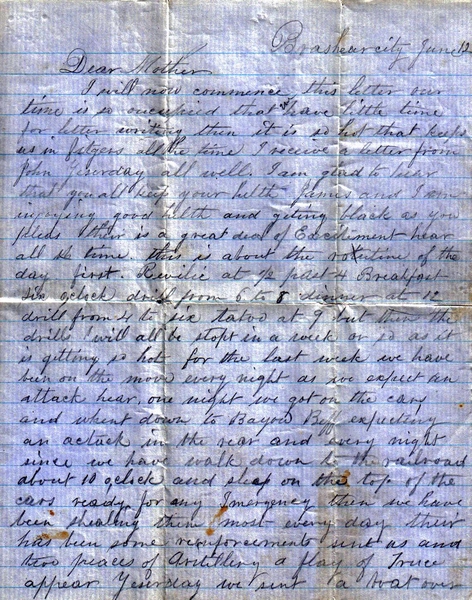 Brashear city June 12
Dear Mother
I will now commence this letter our
time is so occupied that I have little time
for letter writing then it is so hot that keeps
us in all the time I receive a letter from
John yesurday all well. I am glad to hear
that you all keep your helth James and I am
injoying good helth and geting black as you
pleas ther is a great deal of Excitement hear
all the time this is about the routine of the
day first. Revilie at 1/2 past 4 Breakfast
six oclock drill from 6 to 8 dinner at 12
drill from 4 to six tatoo at 9 but then the
drills will all be stopt in a week or so as it
is getting so hot for the last week we have
ben on the move every night as we expect an
attack hear, one night we got on the cars
and whent down to Bayou Beff expecting
an actuck in the rear and every night
since we have walk down to the railroad
about 10 oclock and sleep on the top of the
cars ready for any Imergency then we have
been shealing them most every day their
has bun some reinforcements sent us and
two peaces of Artillery a flag of Truce
appear Yesurday we sent a boat over